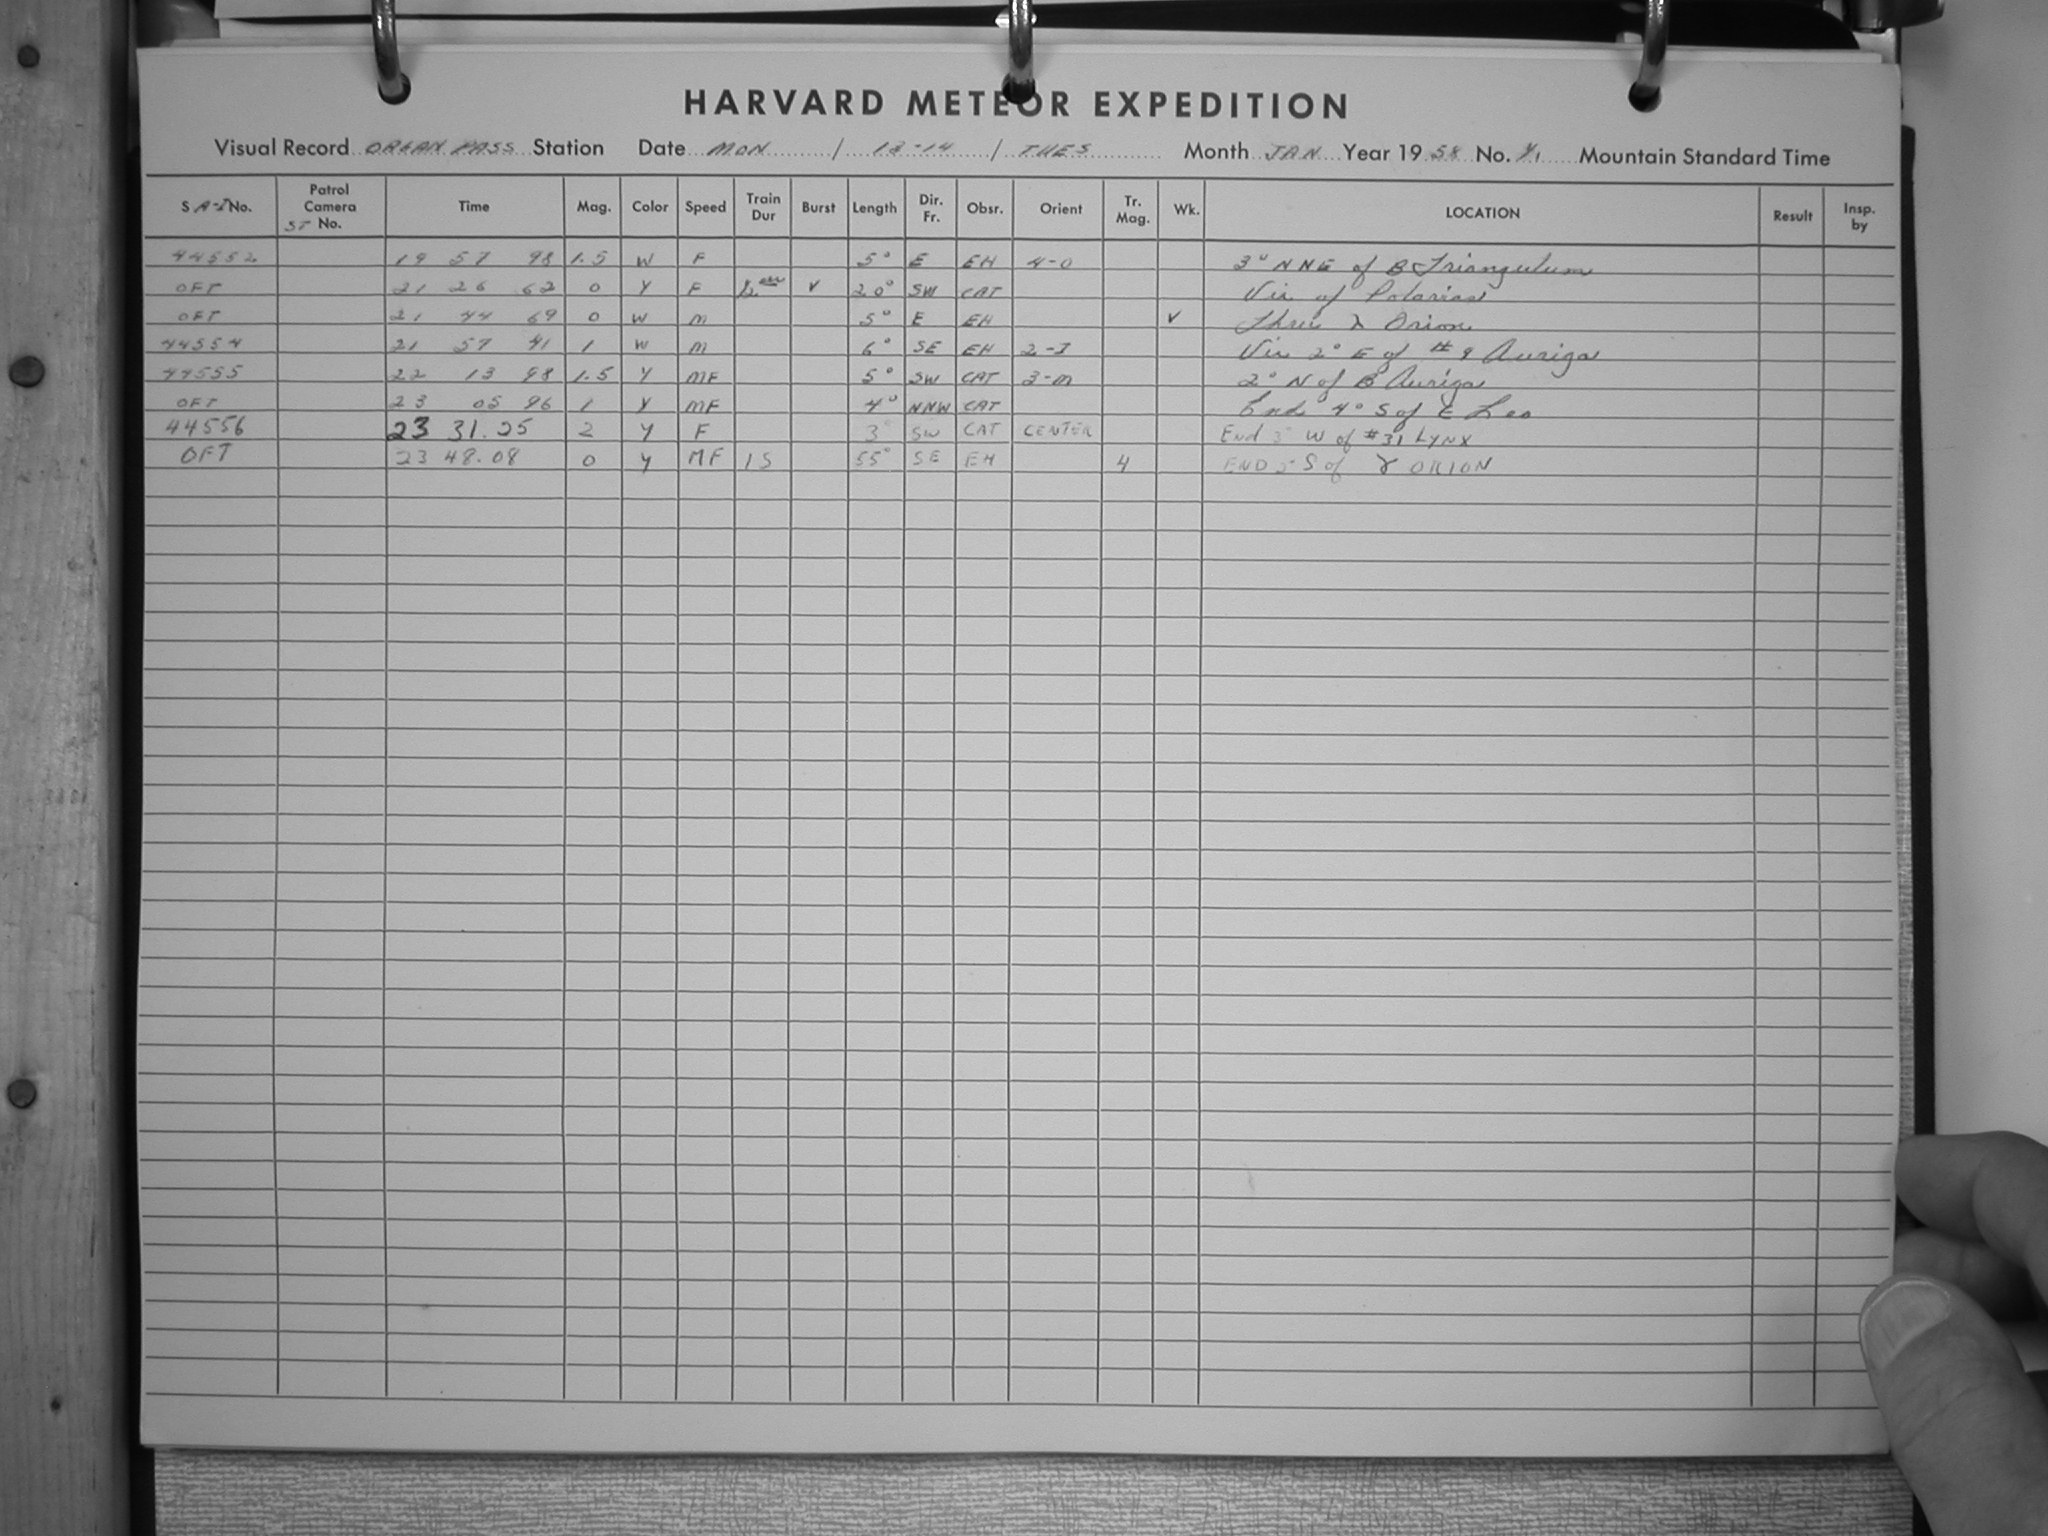 HARVARD METEOR EXPEDITION
Visual Record ORGAN PASS Station Date MON / 13-14 / TUES Month JAN Year 19 58 No. 1/1 Mountain Standard Time
S A-I No. Patrol Camera ST No. Time Mag. Color Speed Train Dur Burst Length Dir. Fr. Obsr. Orient Tr. Mag. Wk. LOCATION Result Insp. by
44552 19 57 98 1.5 W F 5° E EH 4-0 3° NNE of B Triangulum
OFT 21 26 62 0 Y F V 20° SW CAT Vic of Polarias
OFT 21 44 69 0 W M 5° E EH V Thru λ Orion
44554 21 57 41 1 W M 6° SE EH 2-I Vic 2° E of #9 Auriga
44555 22 13 98 1.5 Y MF 5° SW CAT 3-M 2° N of B Auriga
OFT 23 05 96 1 Y MF 4° NNW CAT End 4° S of E Leo
44556 23 31.25 2 Y F 3° SW CAT CENTER End 3° W of #31 LYNX
OFT 23 48.08 0 Y MF 1S 55° SE EH 4 END S of γ ORION